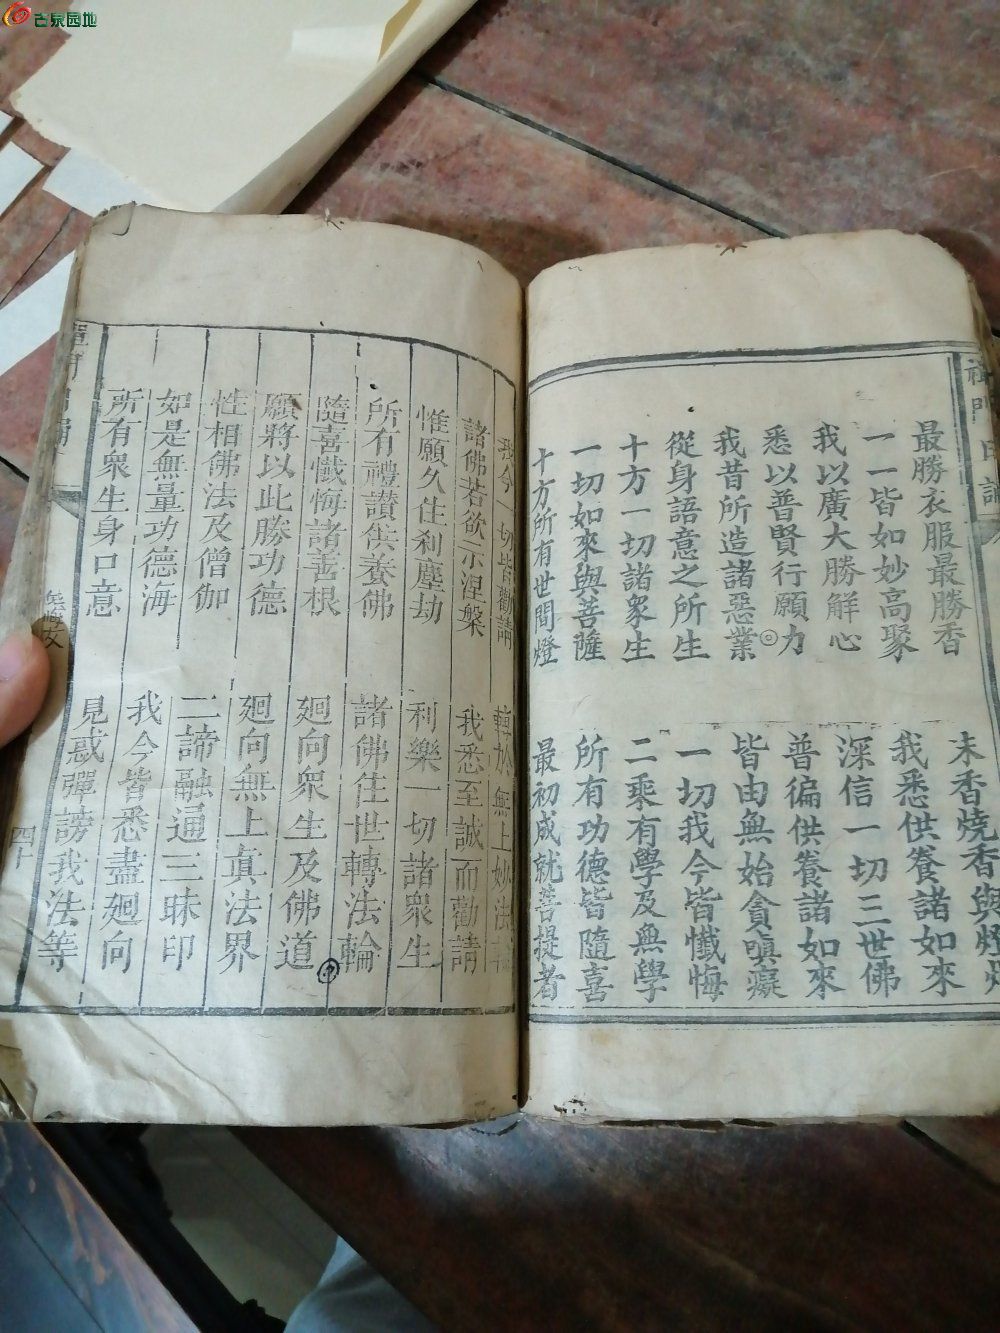 古泉园地
禪門日誦
最勝衣服最勝香 末香燒香與燈燭
一一皆如妙高聚 我悉供養諸如來
我以廣大勝解心 深信一切三世佛
悉以普賢行願力 普徧供養諸如來
我昔所造諸惡業 皆由無始貪嗔癡
從身語意之所生 一切我今皆懺悔
十方一切諸眾生 二乘有學及無學
一切如來與菩薩 所有功德皆隨喜
十方所有世間燈 最初成就菩提者
我今一切皆勸請 轉於無上妙法輪
諸佛若欲示涅槃 我悉至誠而勸請
惟願久住刹塵劫 利樂一切諸衆生
所有禮讚供養佛 諸佛住世轉法輪
隨喜懺悔諸善根 廻向衆生及佛道
願將以此勝功德 廻向無上真法界
性相佛法及僧伽 二諦融通三昧印
如是無量功德海 我今皆悉盡廻向
所有衆生身口意 見惑彈謗我法等
四十